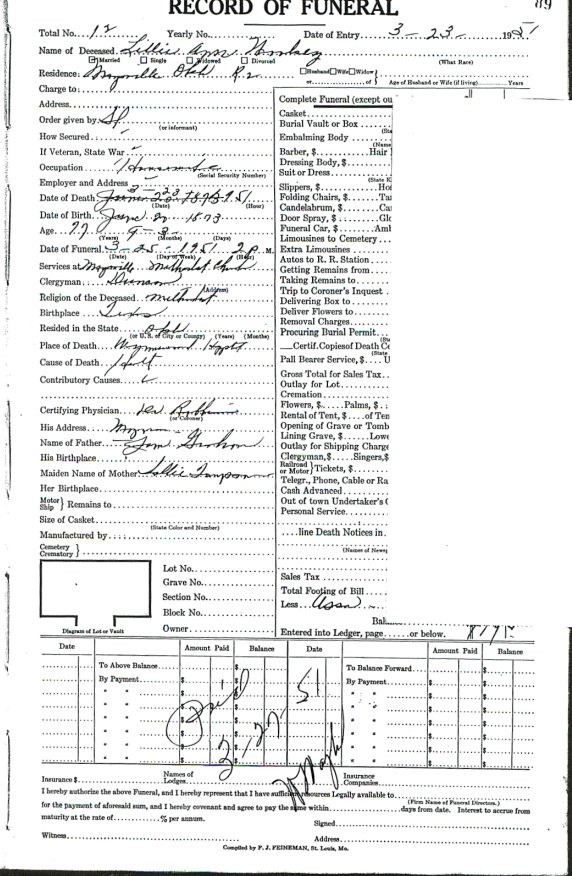 RECORD OF FUNERAL 89
Total No. 12 Yearly No. Date of Entry 3-23- 1951
Name of Deceased Lillie Ann
Married Single Widowed Divorced (What Race)
Residence: Maysville Okla R2 Husband Wife Widow or of Age of Husband or Wife (if living) Years
Charge to
Address
Order given by
(or informant)
How Secured
If Veteran, State War
Occupation
(Social Security Number)
Employer and Address
Date of Death
(Date) (Hour)
Date of Birth June 20 1873
Age 77 9-3-
(Years) (Months) (Days)
Date of Funeral 3-25-1951 2 P. M.
(Date) (Day of Week) (Hour)
Services at Maysville Methodist Church
(Address)
Clergyman
Religion of the Deceased Methodist
Birthplace Texas
Resided in the State Okla
(or U. S. City or County) (Years) (Months)
Place of Death Wynnewood Hospt
Cause of Death
Contributory Causes
Certifying Physician Dr
(or Coroner)
His Address
Name of Father
His Birthplace
Maiden Name of Mother Lillie
Her Birthplace
Motor Ship Remains to
Size of Casket
(State Color and Number)
Manufactured by
Cemetery Crematory
Lot No.
Grave No.
Section No.
Block No.
Owner
Diagram of Lot or Vault
Complete Funeral (except ou
Casket
Burial Vault or Box
(Sta
Embalming Body
(Name
Barber, $ Hair
Dressing Body, $
Suit or Dress
(State K
Slippers, $ Hos
Folding Chairs, $ Ta
Candelabrum, $ Ca
Door Spray, $ Glo
Funeral Car, $ Amb
Limousines to Cemetery
Extra Limousines
Autos to R. R. Station
Getting Remains from
Taking Remains to
Trip to Coroner's Inquest
Delivering Box to
Deliver Flowers to
Removal Charges
Procuring Burial Permit
(St
Certif. Copies of Death Ce
(State
Pall Bearer Service, $ U
Gross Total for Sales Tax
Outlay for Lot
Cremation
Flowers, $ Palms, $
Rental of Tent, $ of Ten
Opening of Grave or Tomb
Lining Grave, $ Low
Outlay for Shipping Charge
Clergyman, $ Singers, $
Railroad or Motor Tickets, $
Telegr., Phone, Cable or Ra
Cash Advanced
Out of town Undertaker's C
Personal Service
line Death Notices in
(Names of News
Sales Tax
Total Footing of Bill
Less Assn
Bal
Entered into Ledger, page or below.
Date Amount Paid Balance Date Amount Paid Balance
To Above Balance $ $ To Balance Forward $ $
By Payment $ $ By Payment $ $
Paid 3/27-51
Insurance $ Names of Lodges Insurance Companies
I hereby authorize the above Funeral, and I hereby represent that I have sufficient resources Legally available to
(Firm Name of Funeral Directors.)
for the payment of aforesaid sum, and I hereby covenant and agree to pay the same within days from date. Interest to accrue from
maturity at the rate of % per annum.
Signed
Witness Address
Compiled by F. J. FEINEMAN, St. Louis, Mo.